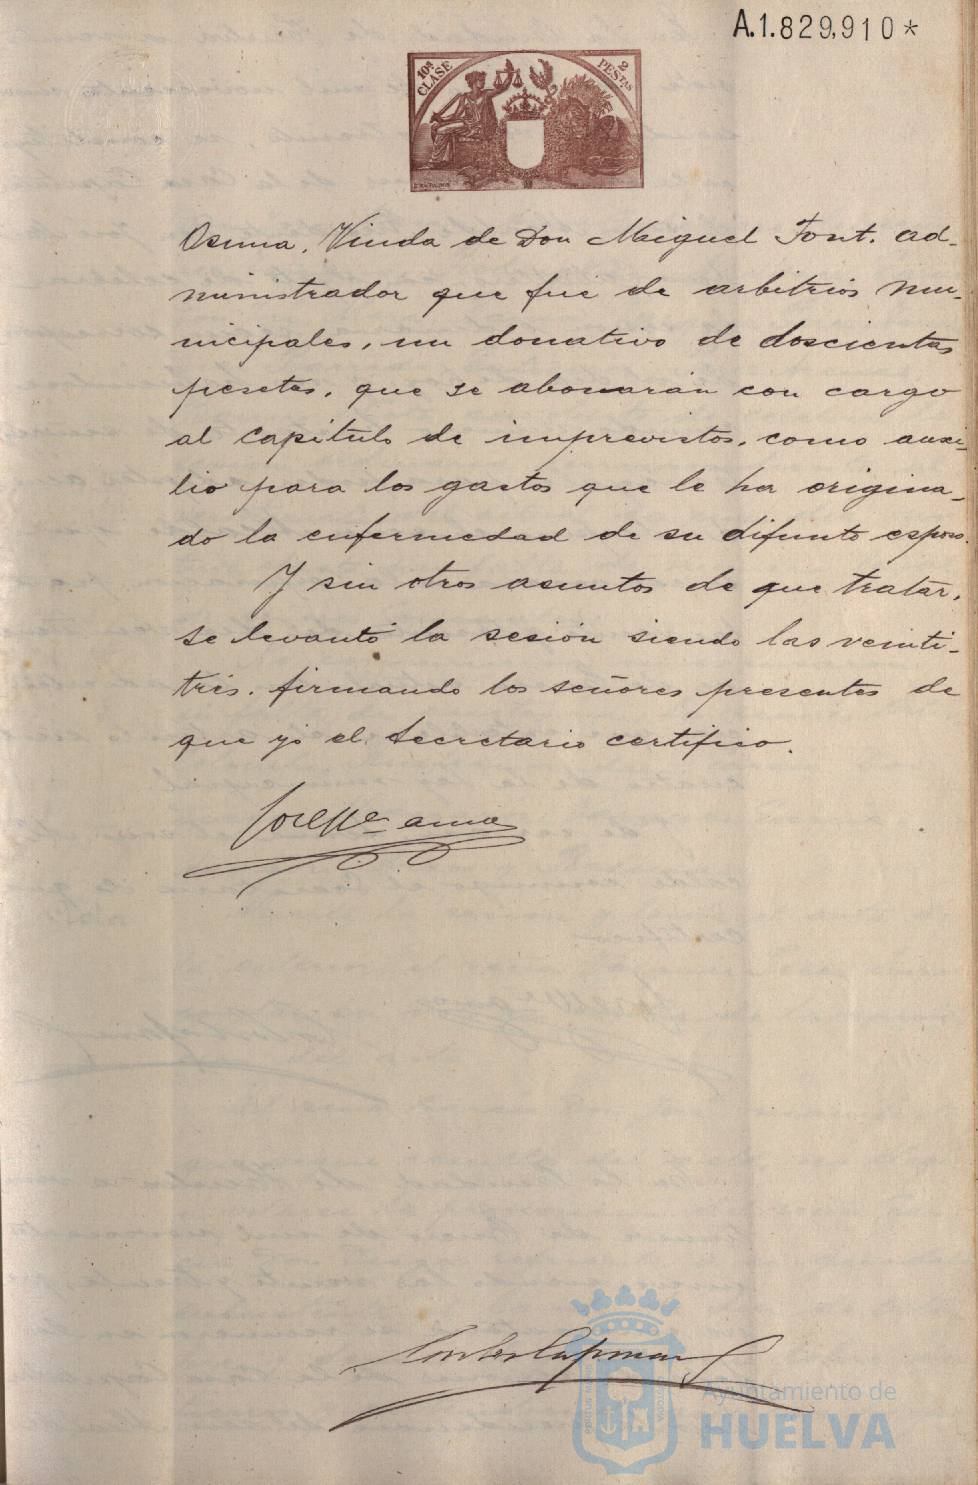 A.1.829,910*
10ª CLASE
2 PESTAS
Osuna, Viuda de Don Miguel Font, ad-
ministrador que fué de arbitrios mu-
nicipales, un donativo de doscientas
pesetas, que se abonarán con cargo
al capítulo de imprevistos, como auxi-
lio para los gastos que le ha origina-
do la enfermedad de su difunto esposo.
Y sin otros asuntos de que tratar,
se levantó la sesión siendo las veinti-
trés, firmando los señores presentes de
que yo el Secretario certifico.
Ayuntamiento de
HUELVA